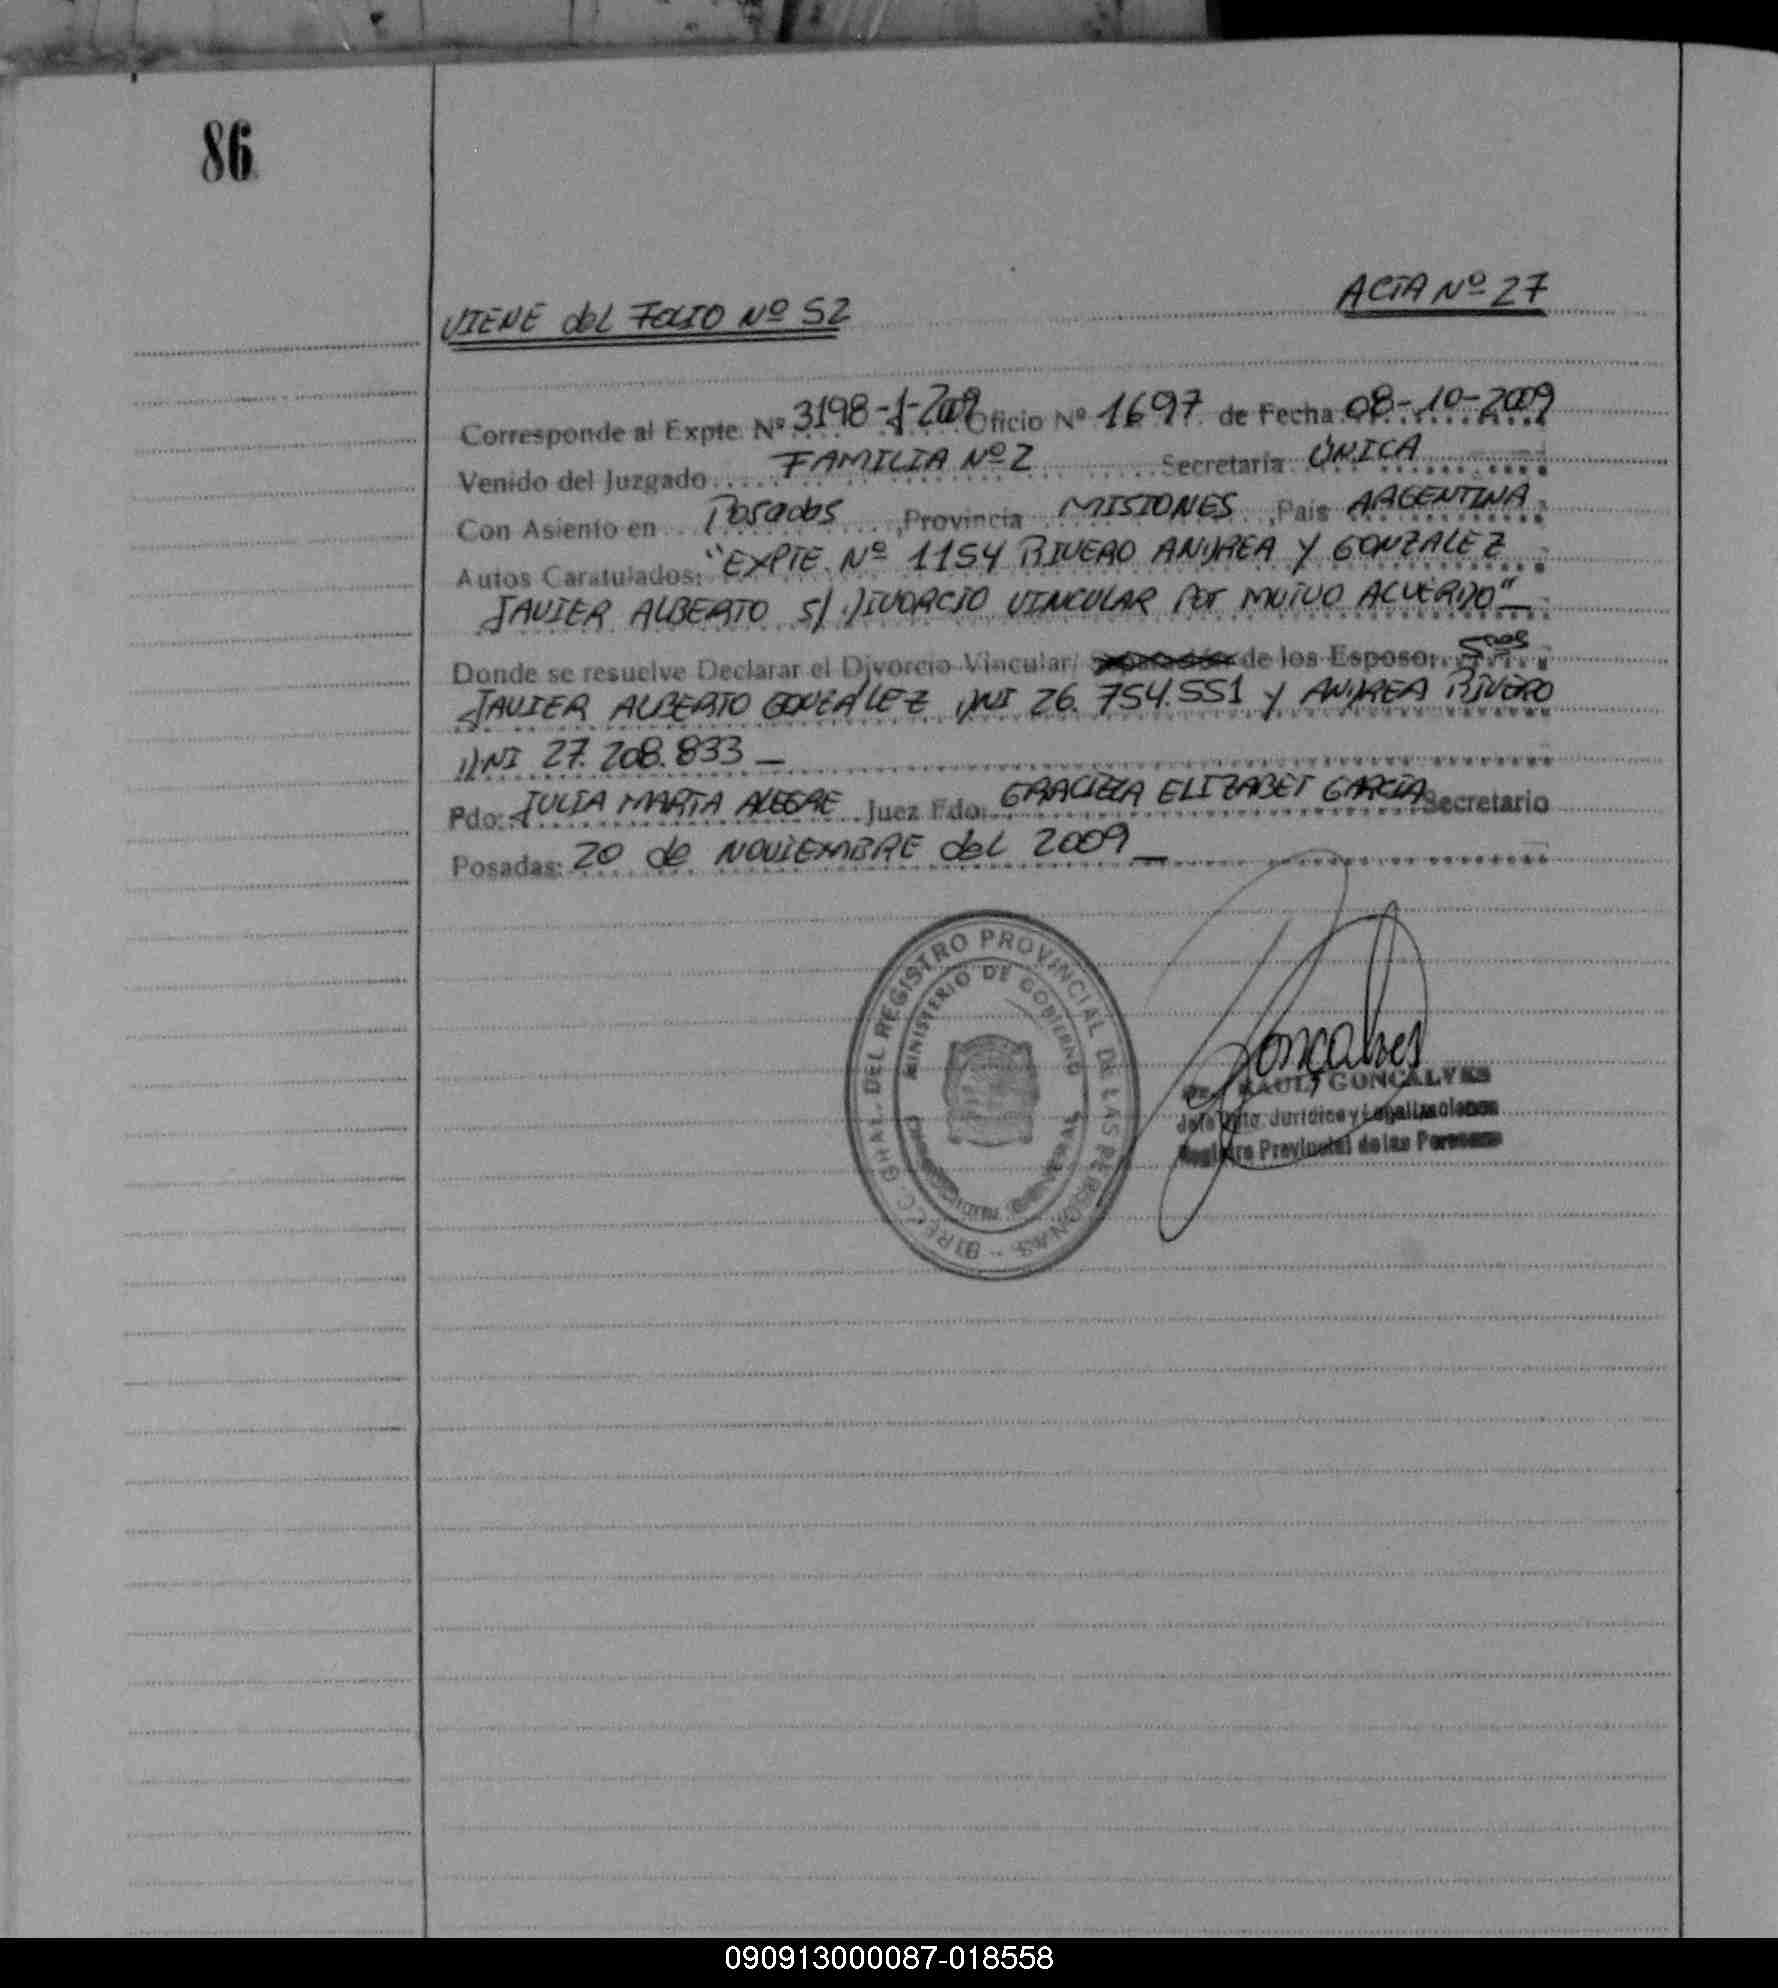 86
ACTA Nº 27
VIENE del FOLIO Nº 52
Corresponde al Expte. Nº 3198-J-2009 Oficio Nº 1697 de Fecha 08-10-2009
Venido del Juzgado FAMILIA Nº 2 Secretaría ÚNICA
Con Asiento en Posadas, Provincia MISIONES, País ARGENTINA
Autos Caratulados: "EXPTE. Nº 1154 RIVERO ANDREA Y GONZALEZ
JAVIER ALBERTO S/ DIVORCIO VINCULAR POR MUTUO ACUERDO"
Donde se resuelve Declarar el Divorcio Vincular/ de los Esposo: Sres
JAVIER ALBERTO GONZALEZ DNI 26.754.551 y ANDREA RIVERO
DNI 27.208.833
Fdo: JULIA MARTA ALEGRE Juez Fdo: GRACIELA ELIZABET GARCIA Secretario
Posadas: 20 de NOVIEMBRE del 2009
DIRECC. GRAL. DEL REGISTRO PROVINCIAL DE LAS PERSONAS
MINISTERIO DE GOBIERNO
Goncalves
RAUL GONCALVES
Jefe Dpto. Jurídico y Legalizaciones
Registro Provincial de las Personas
090913000087-018558